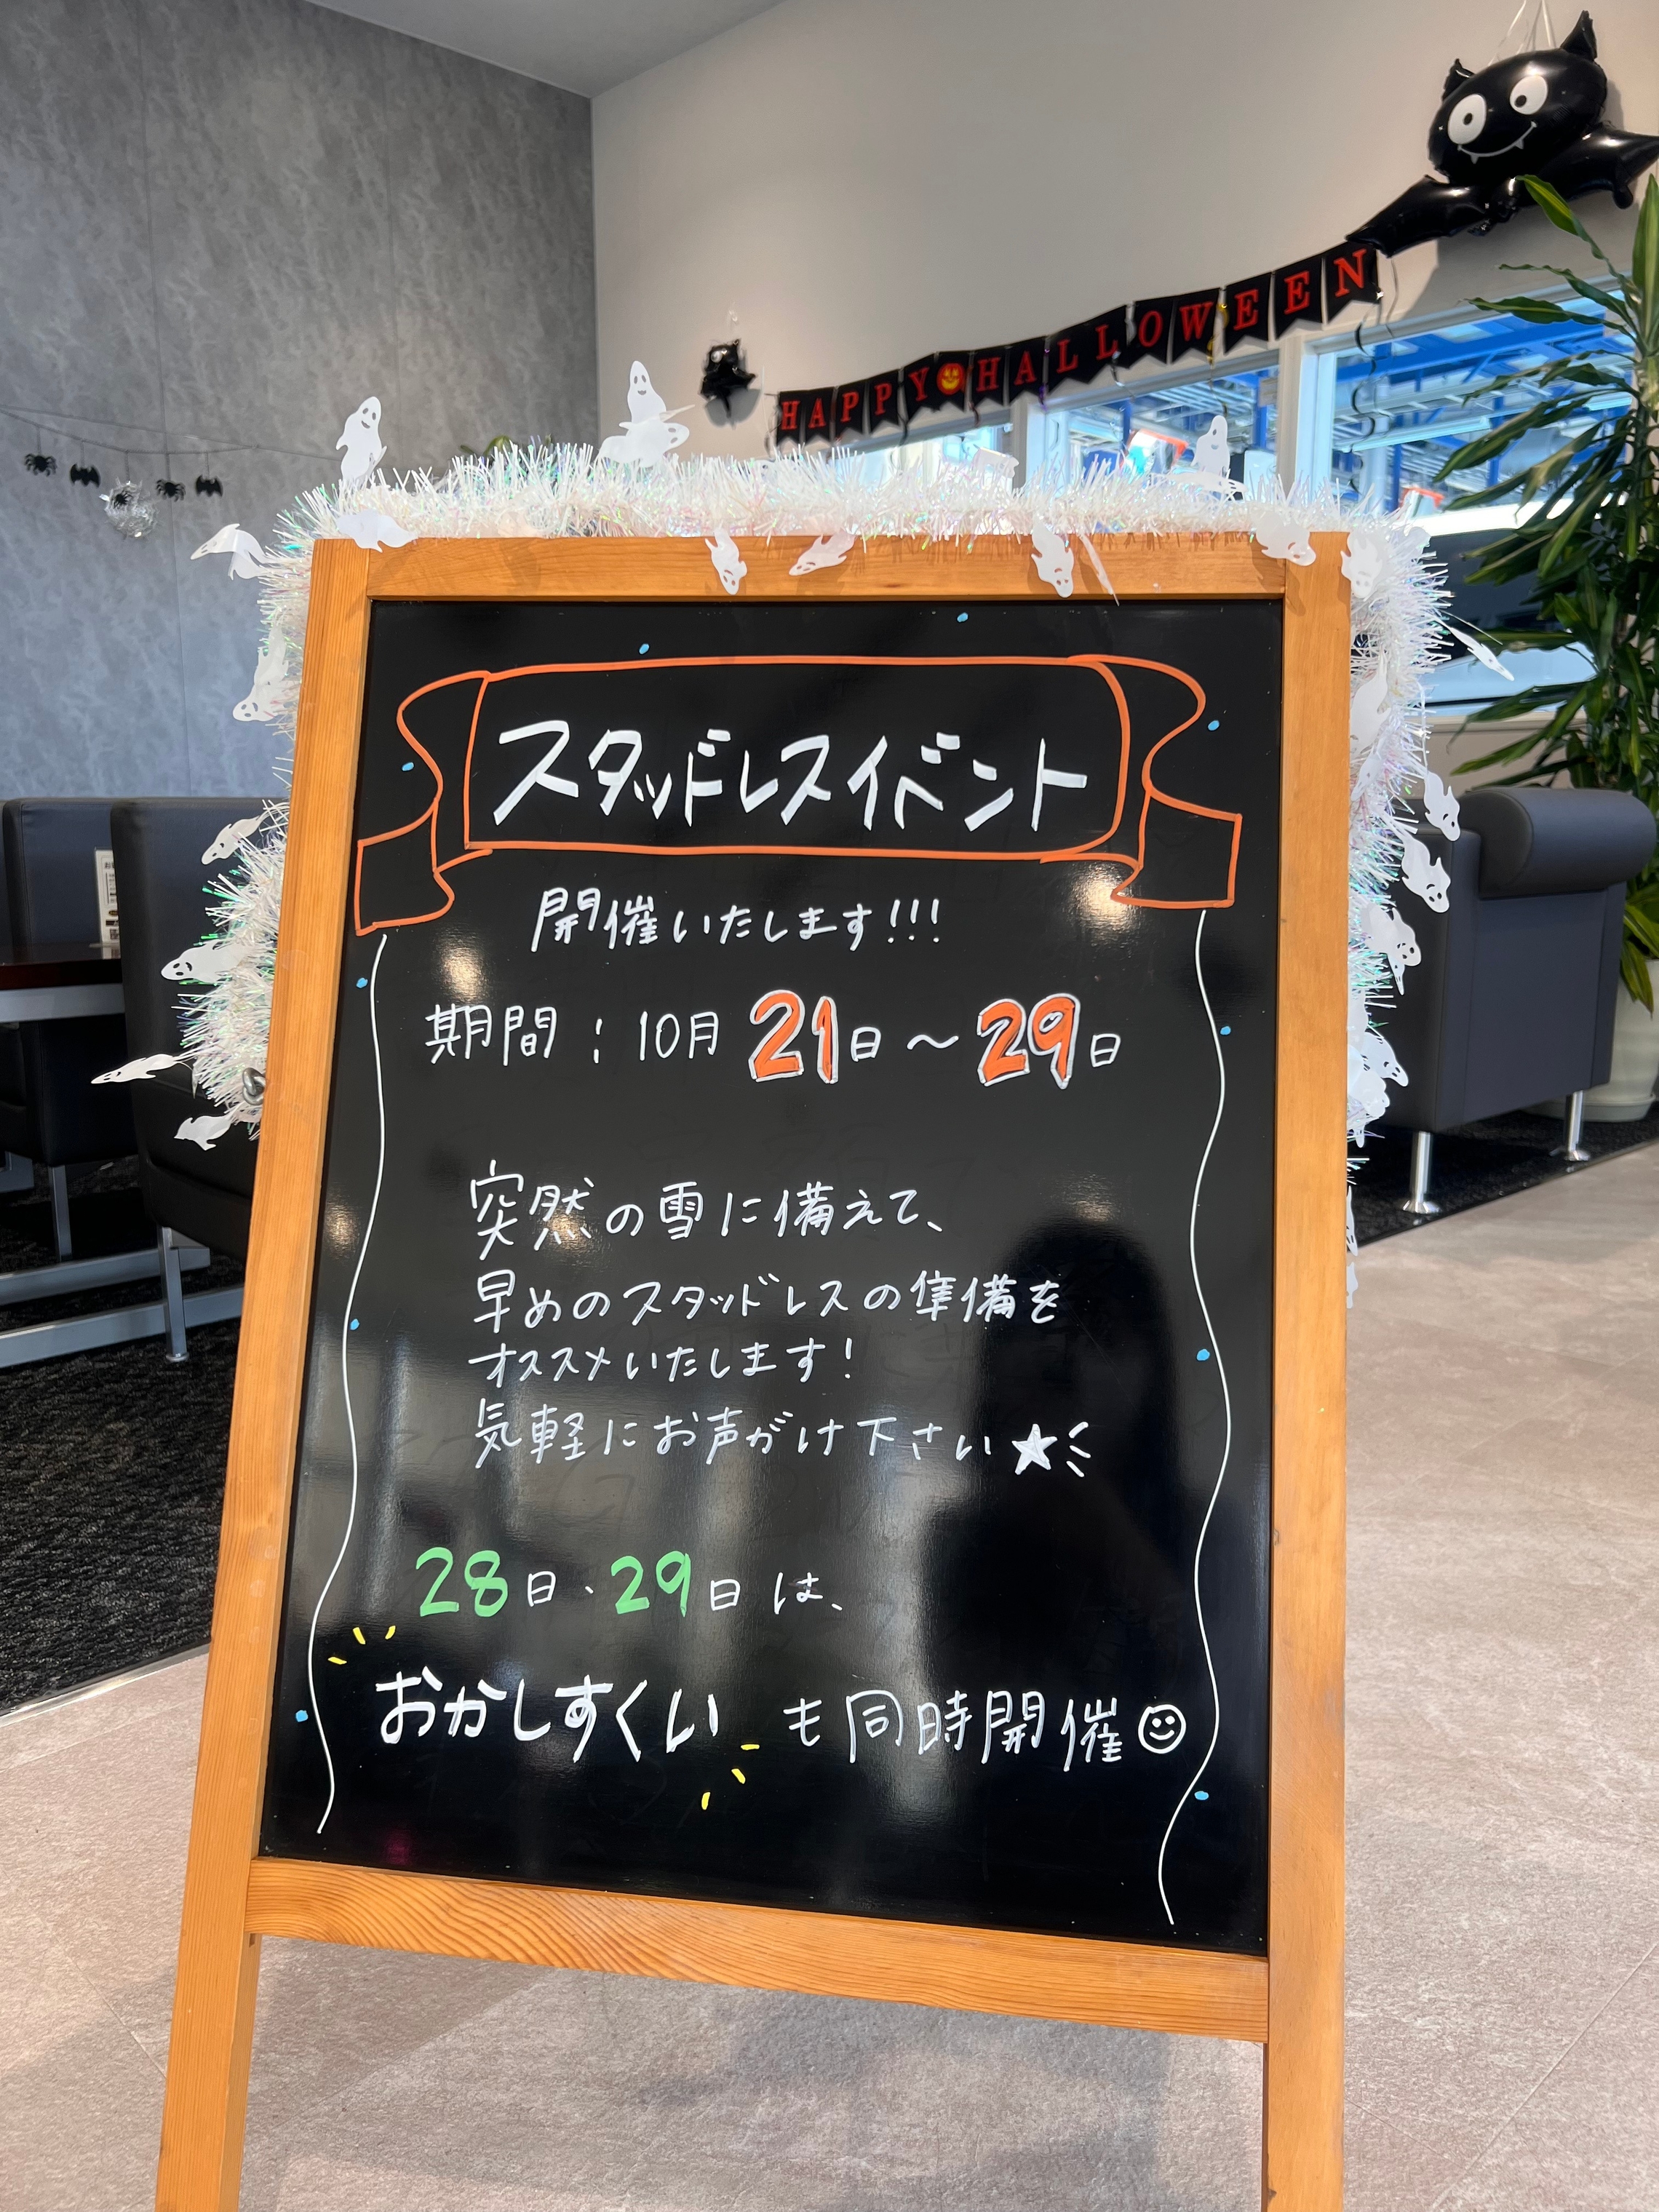 HAPPY HALLOWEEN
スタッドレスイベント
開催いたします!!!
期間:10月21日〜29日
突然の雪に備えて、
早めのスタッドレスの準備を
オススメいたします!
気軽にお声がけ下さい★
28日・29日は、
おかしすくい も同時開催☺